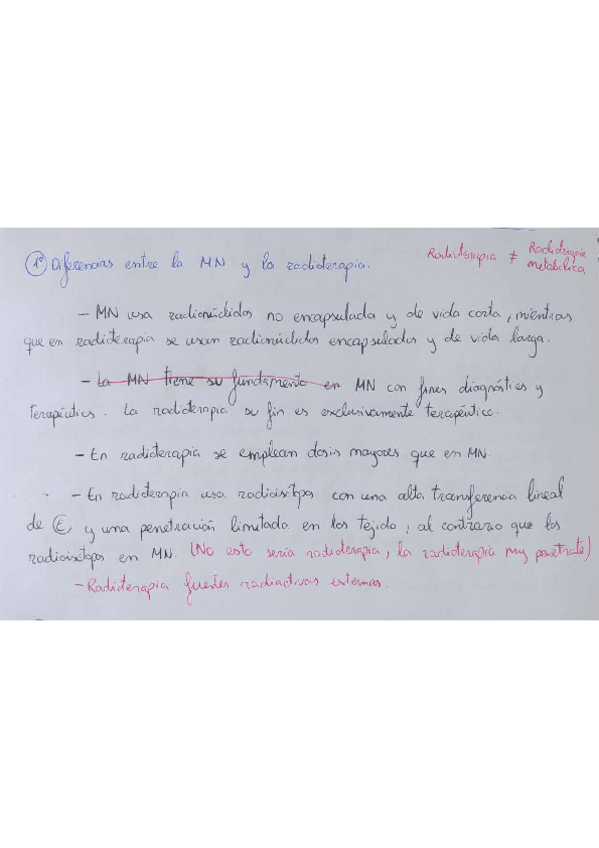 1º Diferencias entre la MN y la radioterapia.
Radioterapia ≠ Radioterapia metabólica
- MN usa radionúclidos no encapsulada y de vida corta, mientras
que en radioterapia se usan radionúclidos encapsulados y de vida larga.
- La MN tiene su fundamento en MN con fines diagnósticos y
terapéuticos. La radioterapia su fin es exclusivamente terapéutico.
- En radioterapia se emplean dosis mayores que en MN.
- En radioterapia usa radioisótopos con una alta transferencia lineal
de E y una penetración limitada en los tejido, al contrario que los
radioisótopos en MN. (No esto sería radioterapia, la radioterapia muy penetrate)
- Radioterapia fuentes radiactivas externas.